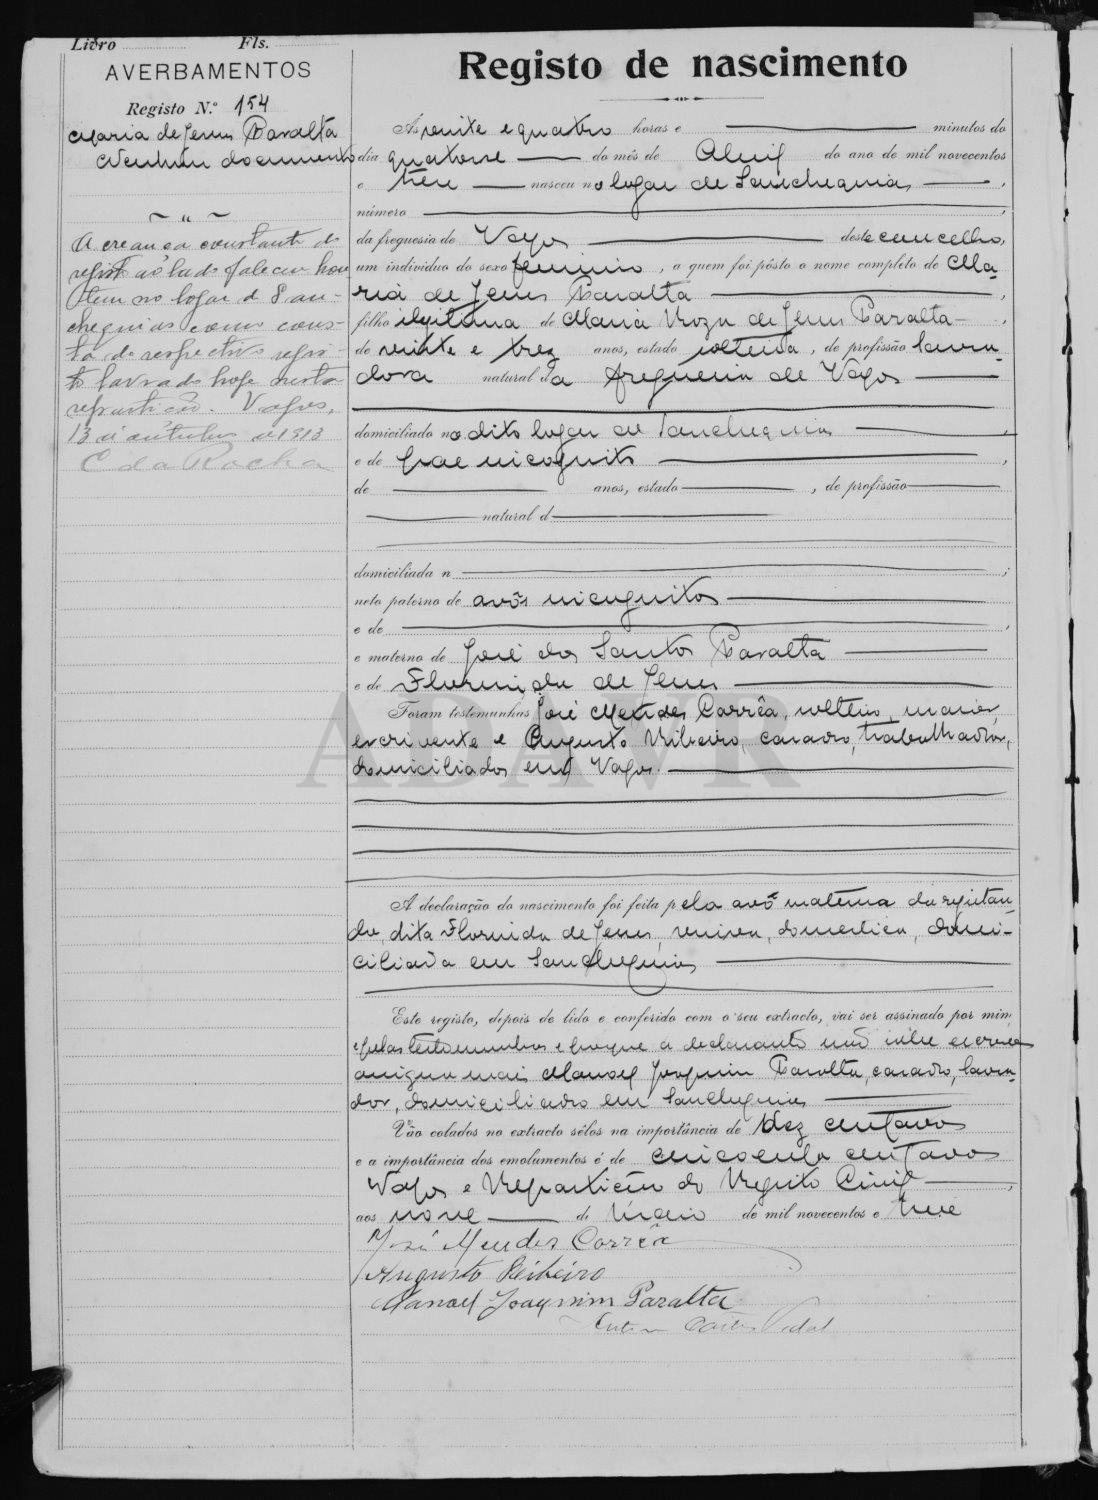 Livro Fls.
AVERBAMENTOS
Registo N.º 154
Maria de Jesus Paralta
Nenhum documento
~ " ~
A creança constante do
registo ao lado faleceu hon
tem no logar de San-
chequias como cons-
ta do respectivo regis-
to lavrado hoje nesta
repartição. Vagos,
13 de outubro de 1913
C da Rocha
Registo de nascimento
Ás vinte e quatro horas e minutos do
dia quatorze do mês de Abril do ano de mil novecentos
e treze nasceu no logar de Sanchequias,
número
da freguesia de Vagos deste concelho,
um individuo do sexo feminino, a quem foi pôsto o nome completo de Ma-
ria de Jesus Paralta,
filho ilegitima de Maria Roza de Jesus Paralta,
de vinte e trez anos, estado solteira, de profissão lavra-
dora natural da freguesia de Vagos
domiciliado no dito logar de Sanchequias,
e de pae incognito,
de anos, estado, de profissão
natural d
domiciliada n;
neto paterno de avós incognitos
e de,
e materno de José dos Santos Paralta
e de Florinda de Jesus
Foram testemunhas José Mendes Corrêa, solteiro, maior,
escrivente e Augusto Ribeiro, casado, trabalhador,
domiciliados em Vagos.
A declaração do nascimento foi feita pela avó materna da registan-
da, dita Florinda de Jesus, viuva, domestica, domi-
ciliada em Sanchequias
Este registo, depois de lido e conferido com o seu extracto, vai ser assinado por mim
e pelas testemunhas e porque a declarante não sabe escrever
assigna mais Manoel Joaquim Paralta, casado, lavra-
dor, domiciliado em Sanchequias
Vão colados no extracto sêlos na importância de dez centavos
e a importância dos emolumentos é de cincoenta centavos
Vagos e Repartição do Registo Civil,
aos nove de Maio de mil novecentos e treze
José Mendes Corrêa
Augusto Ribeiro
Manoel Joaquim Paralta
Vidal
ADAVR